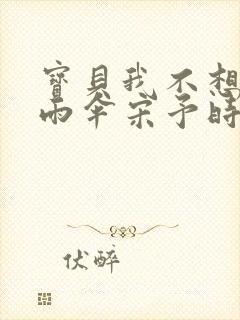 寶貝我不想
雨傘宋予時
伏醉